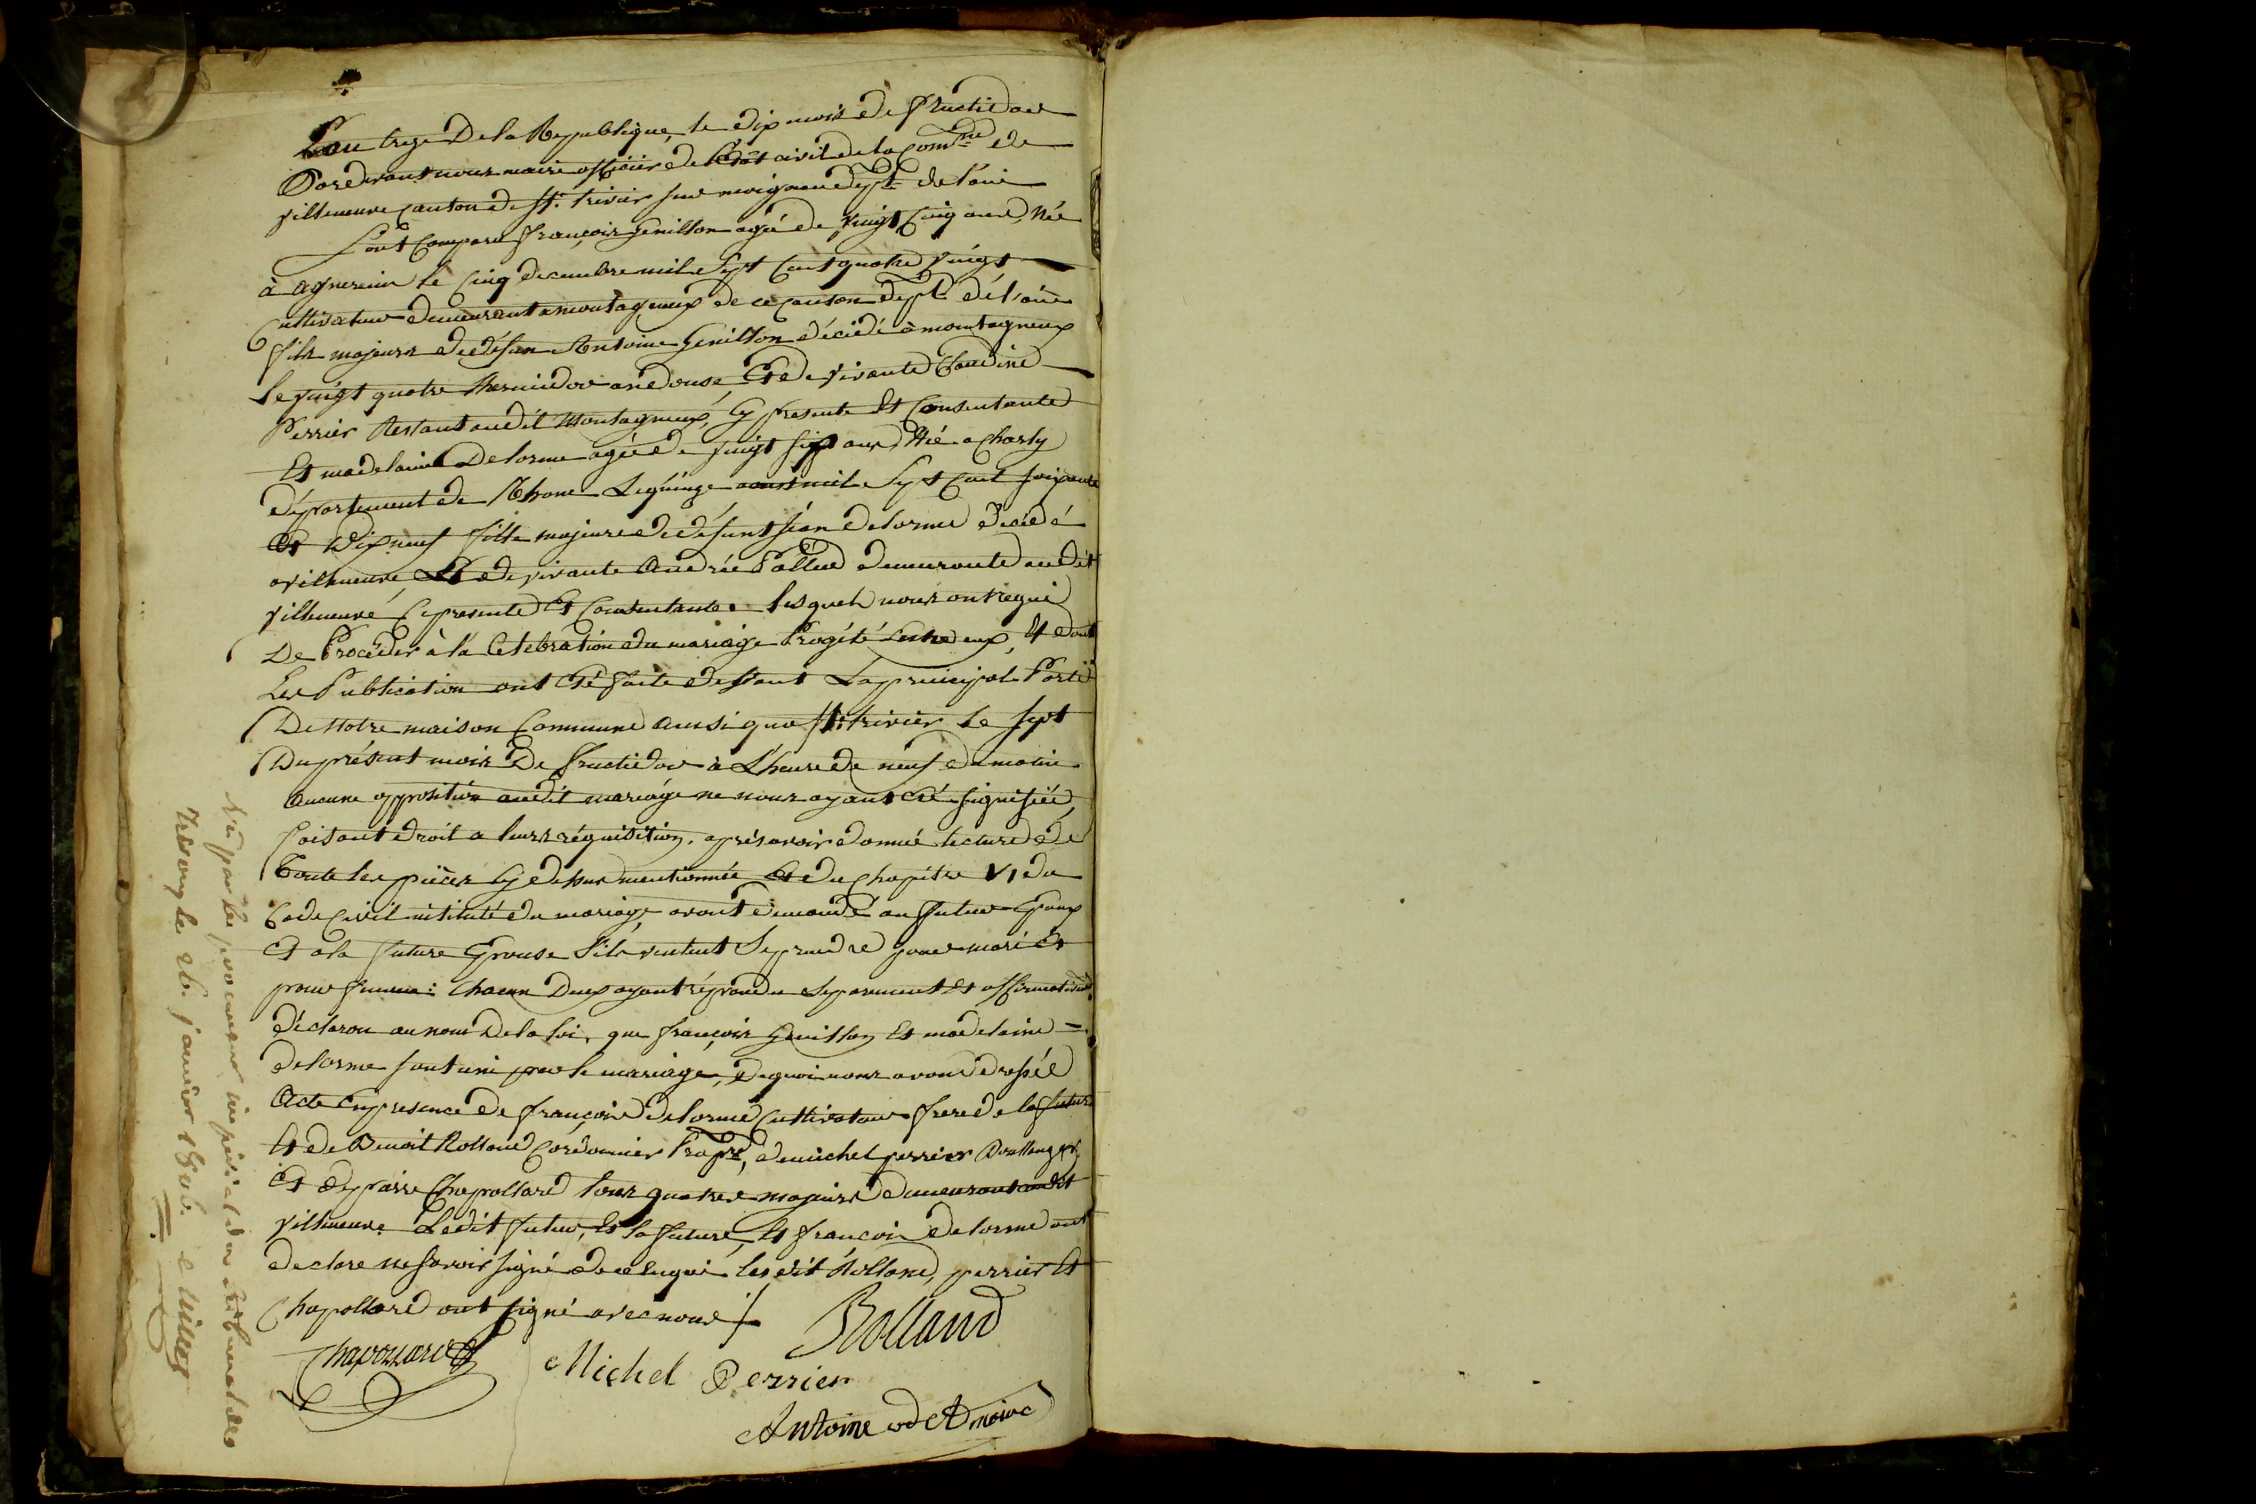 L'an treze De la Republique, le dix mois de fructidor
Pardevant nous maire officier de l'Etat civil de la Comne de
villeneuve canton de St. trivier sur moignan dept. de l'ain
sont Comparu françois Genillon agé de vingt cinq ans, Née
à agnereins le cinq decembre mil sept cent quatre vingt
Cultivateur demeurant a montagneux de ce canton dept. de l'ain
fils majeurs de défun Antoine Genillon décédé à montagneux
le vingt quatre thermidor an douse, Et de vivante Claudine
Perrier Restant audit Montagneux, Cy presente Et Consentante
Et madelaine Delorme agée de vingt six ans Née a Charly
département de Rhone Le quinze aoust mil Sept Cent soixante
Et Dix neuf fille majeure de défunt jéan Delorme décédé
a villeneuve, Et de vivante Andrée Pallue demeurante audit
villeneuve Cy presente Et Consentante. lesquels nous on requi
De Procéder à la Celebration du mariage Progété Entre eux, Et dont
Les Publication ont été faite devant La principal Porte
De Notre maison Commune ainsi qua St: trivier le sept
Du présent mois De fructidor à L'heure de neuf du matin
Aucune opposition audit mariage ne nous ayant été signifiée,
faisant droit a leurs réquisition, aprés avoir donné lecture de
Toute les pièces Cy dessus mentionnée Et du Chapitre VI du
Code Civil intitulé du mariage avont demandé au futur Epoux
Et a la future Epouse S'ils veulent Se prendre pour mari Et
pour femme: Chacun Deux ayant répondu séparement Et affirmativemt
déclaron au nom De la loi, que françois Genillon Et madelaine
delorme sont uni par le mariage, De quoi nous avons dressée
Acte En presence de françois delorme Cultivateur frere de la future
Et de Benoit Rolland Cordonnier Propre, de michel perrier Boullanger
Et de pierre Chapollard tous quatre majeurs demeurant audit
villeneuve Ledit futur, Et la future, Et françois Delorme ont
declare ne savoir signé de ce Enquis les dit Rolland, perrier Et
Chapollard ont signé avec nous
Rolland
Chapollard
Michel Perrier
Antoine maire
Vu par le procureur impérial du tribunal de
Trévoux le 26. janvier 1806.